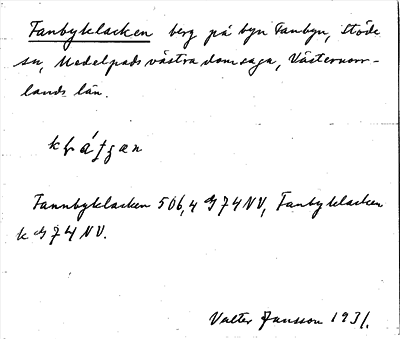 Fanbyklacken berg på byn Fanbyn, Stöde
sn, Medelpads västra domsaga, Västernorr-
lands län.
Fannbyklacken 506,4 G 74 NV, Fanbyklacken
k G 74 NV.
Valter Jansson 1931.